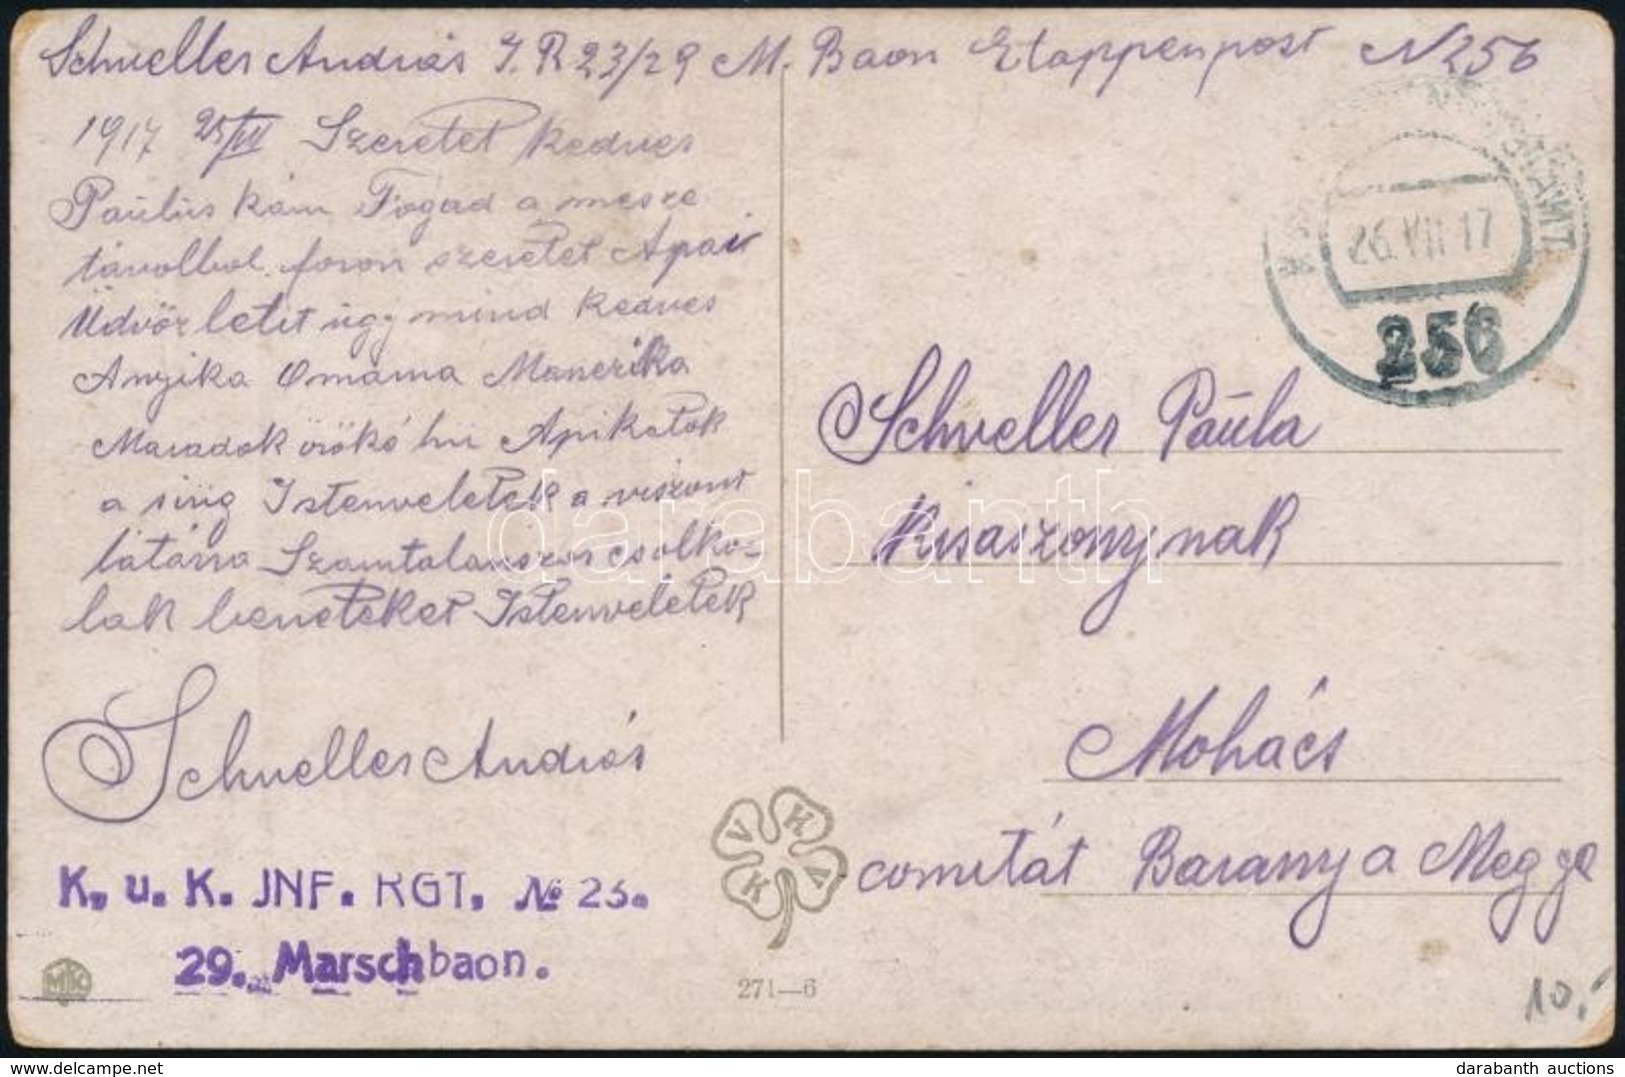 Schneller András I. R 23/29 M. Baon Etappenpost N 256
1917 25/VII Szeretet kedves
Paulus kám Fogad a mesze
távolbol foron szeretet Apai
Üdvöz letit úgy mind kedves
Anyika Omama Manczika
Maradok örökö hü Apikatok
a sirig Istenveletek a viszont
látásra Szamtalanszor csolko-
lak beneteket Istenveletek
Schneller András
K. u. K. JNF. RGT. № 23.
29. Marschbaon.
MK
26. VII 17
256
Schneller Paula
Kisaszonynak
Mohács
comitát Baranya Megye
V H V K
271—6
10.-
darabanth
darabanth auctions